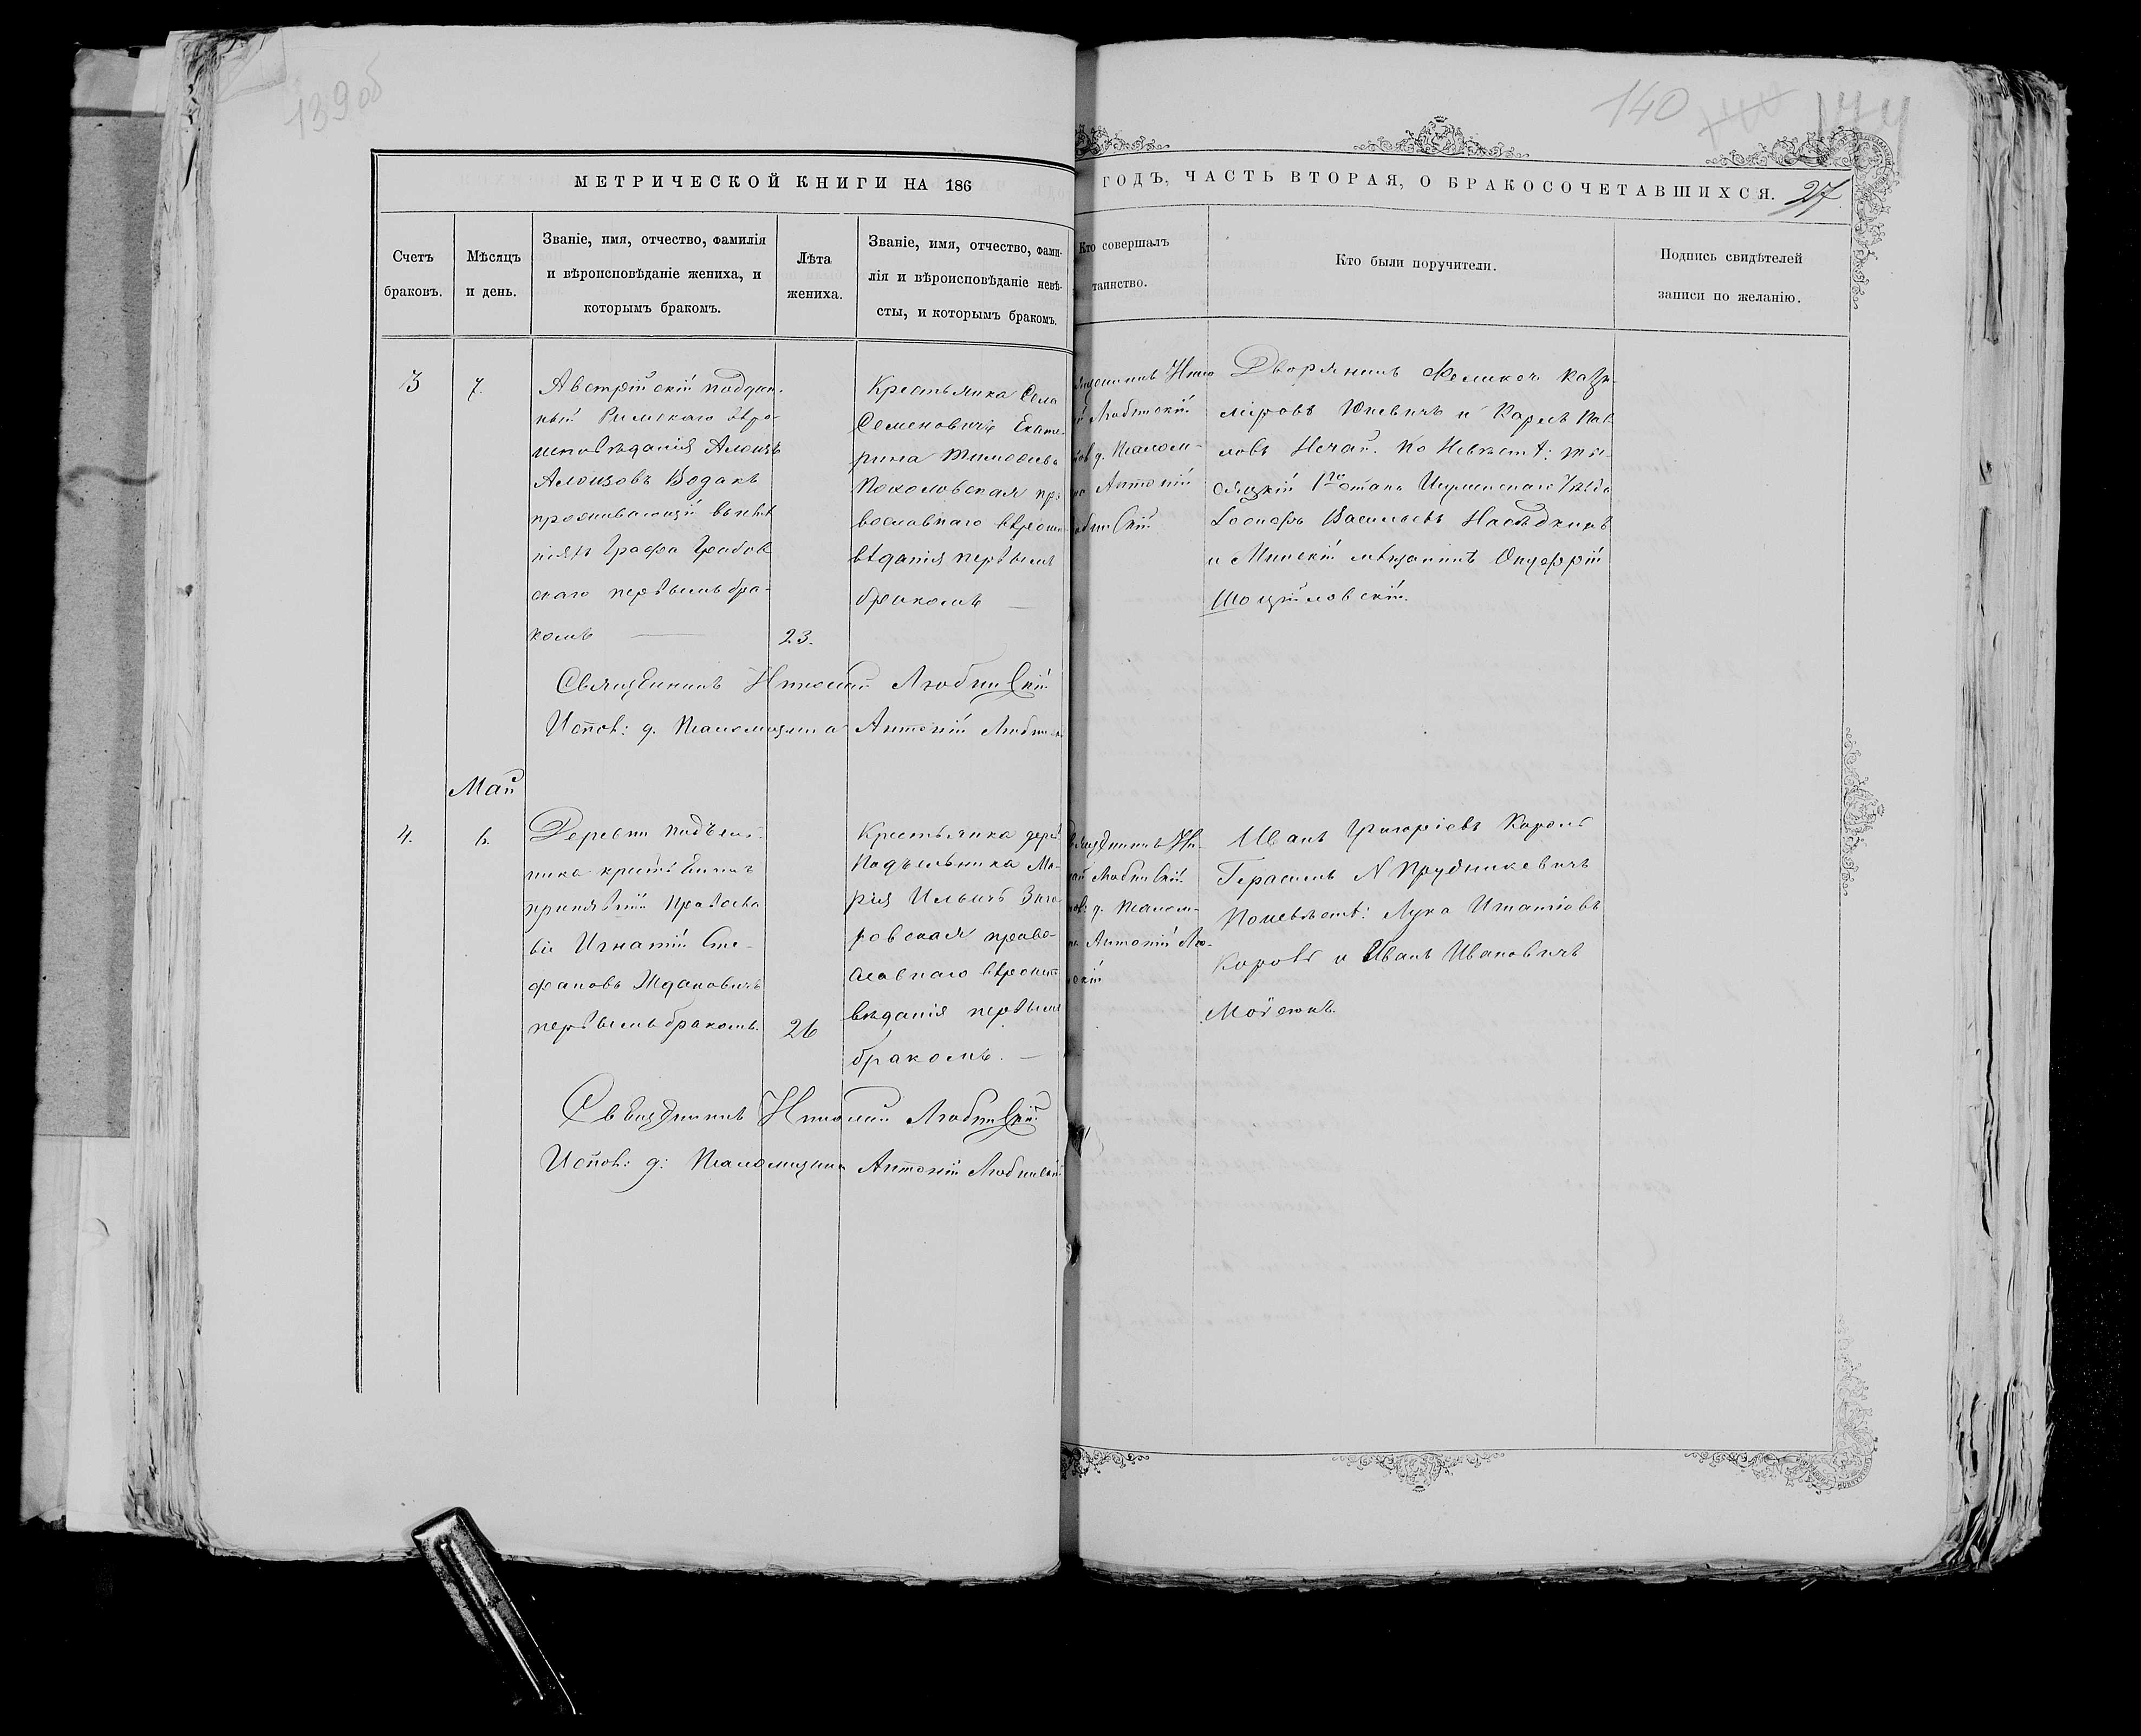 139об
140
144
МЕТРИЧЕСКОЙ КНИГИ НА 186
ГОДЪ, ЧАСТЬ ВТОРАЯ, О БРАКОСОЧЕТАВШИХСЯ.
27
Счетъ
браковъ.
Мѣсяцъ
и день.
Званіе, имя, отчество, фамилія
и вѣроисповѣданіе жениха, и
которымъ бракомъ.
Лѣта
жениха.
Званіе, имя, отчество, фами-
лія и вѣроисповѣданіе невѣ-
сты, и которымъ бракомъ.
Кто совершалъ
таинство.
Кто были поручители.
Подпись свидѣтелей
записи по желанію.
3
7.
Австрійскій поддан-
ный Римскаго вѣро-
исповѣданія Алоизъ
Алоизовъ Водакъ
проживающій въ имѣ
ніяхъ Графа Грабов
скаго первымъ бра-
комъ
23.
Крестьянка Села
Семеновичъ Екате-
рина
православнаго вѣроиспо
вѣданія первымъ
бракомъ
Любинскій
д. Псалом-
Антоній
Дворянинъ Феликсъ Кази-
міровъ Юневичъ и Карлъ Пав
ловъ Нечай. По Невѣстѣ:
1го стана Игуменскаго Уѣзда
Іосифъ Васильевъ Насѣдкинъ
и Минскій мѣщанинъ Онуфрій
Священникъ Николай Любинскій
Испов: д. Псаломщика Антоній Любин
Май
4.
6.
Деревни Подъель-
ника крестьянинъ
принявшій Правосла
віе Игнатій Сте-
фановъ Ждановичъ
первымъ бракомъ.
26
Крестьянка дерев
Подъельника Ма-
рія Ильичъ
ровская право-
славнаго вѣроиспо
вѣданія первымъ
бракомъ.
Любинскій
д. Псалом-
Антоній Лю-
Иванъ Григоріевъ Король
Герасимъ Прудникевичъ
По невѣстѣ: Лука Игнатіевъ
Король и Иванъ Ивановичъ
Священникъ Николай Любинскій
Испов: д: Псаломщика Антоній Любинскій